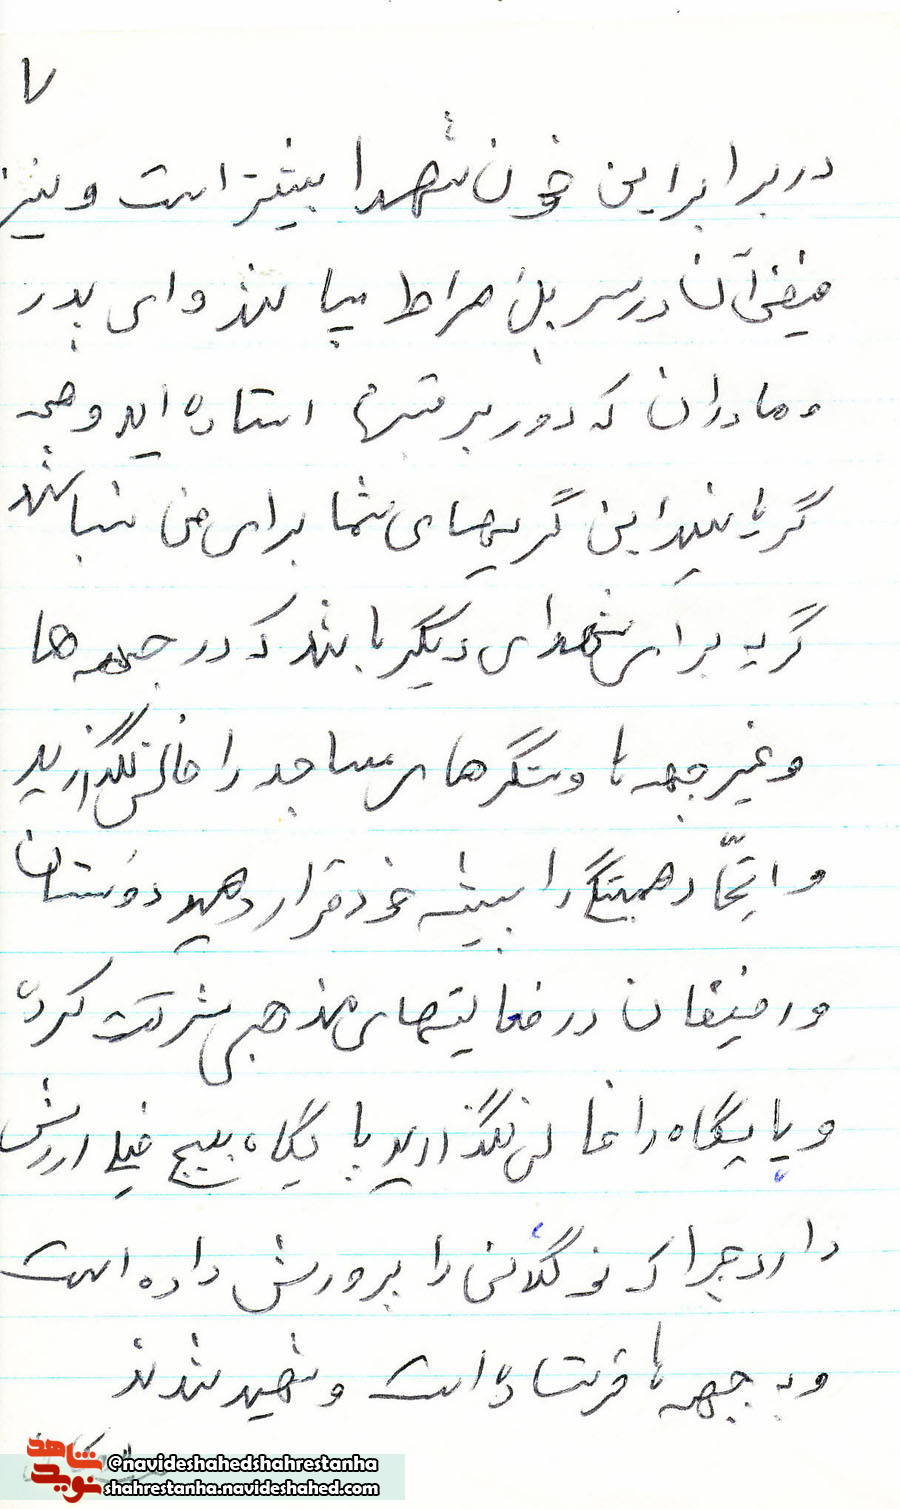 ۷
در برابر این خون شهدا بیشتر است و نیز
آن در سر پل صراط میباشد و ای پدر
و مادران که دور بر قبرها استاده اید و ضجه
گریانید این گریهای شما برای من نباشد
گریه برای شهدای دیگر باشد که در جبهه ها
و غیر جبهه ها و سنگرهای مساجد را خالی نگذارید
و اتّحاد همبستگی را پیشه خود قرار دهید دوستان
و رفیقان در فعالیتهای مذهبی شرکت کرده
و پایگاه را خالی نگذارید پایگاه بسیج خیلی ارزش
دارد چرا که نوگلانی را پرورش داده است
و به جبهه ها فرستاده است و شهید شدند
شاهد
نوید
@navideshahedshahrestanha
shahrestanha.navideshahed.com